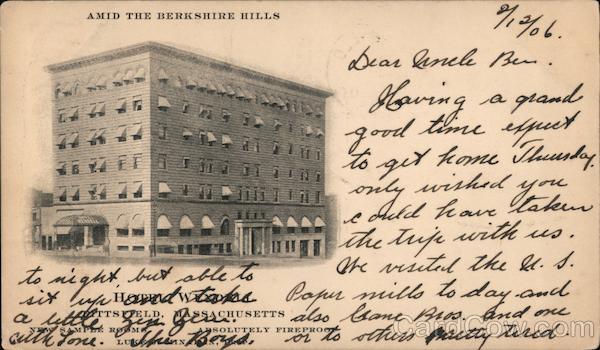 AMID THE BERKSHIRE HILLS
2/12/06.
Dear Uncle Ben.
Having a grand
good time expect
to get home Thursday.
only wished you
could have taken
the trip with us.
We visited the U. S.
Paper mills to day and
also Crane Bros. and one
or to others pretty tired
to night, but able to
sit up and take
a little
with some. The Boys.
HOTEL
PITTSFIELD, MASSACHUSETTS
NEW SAMPLE ROOMS ABSOLUTELY FIREPROOF
CardCow.com